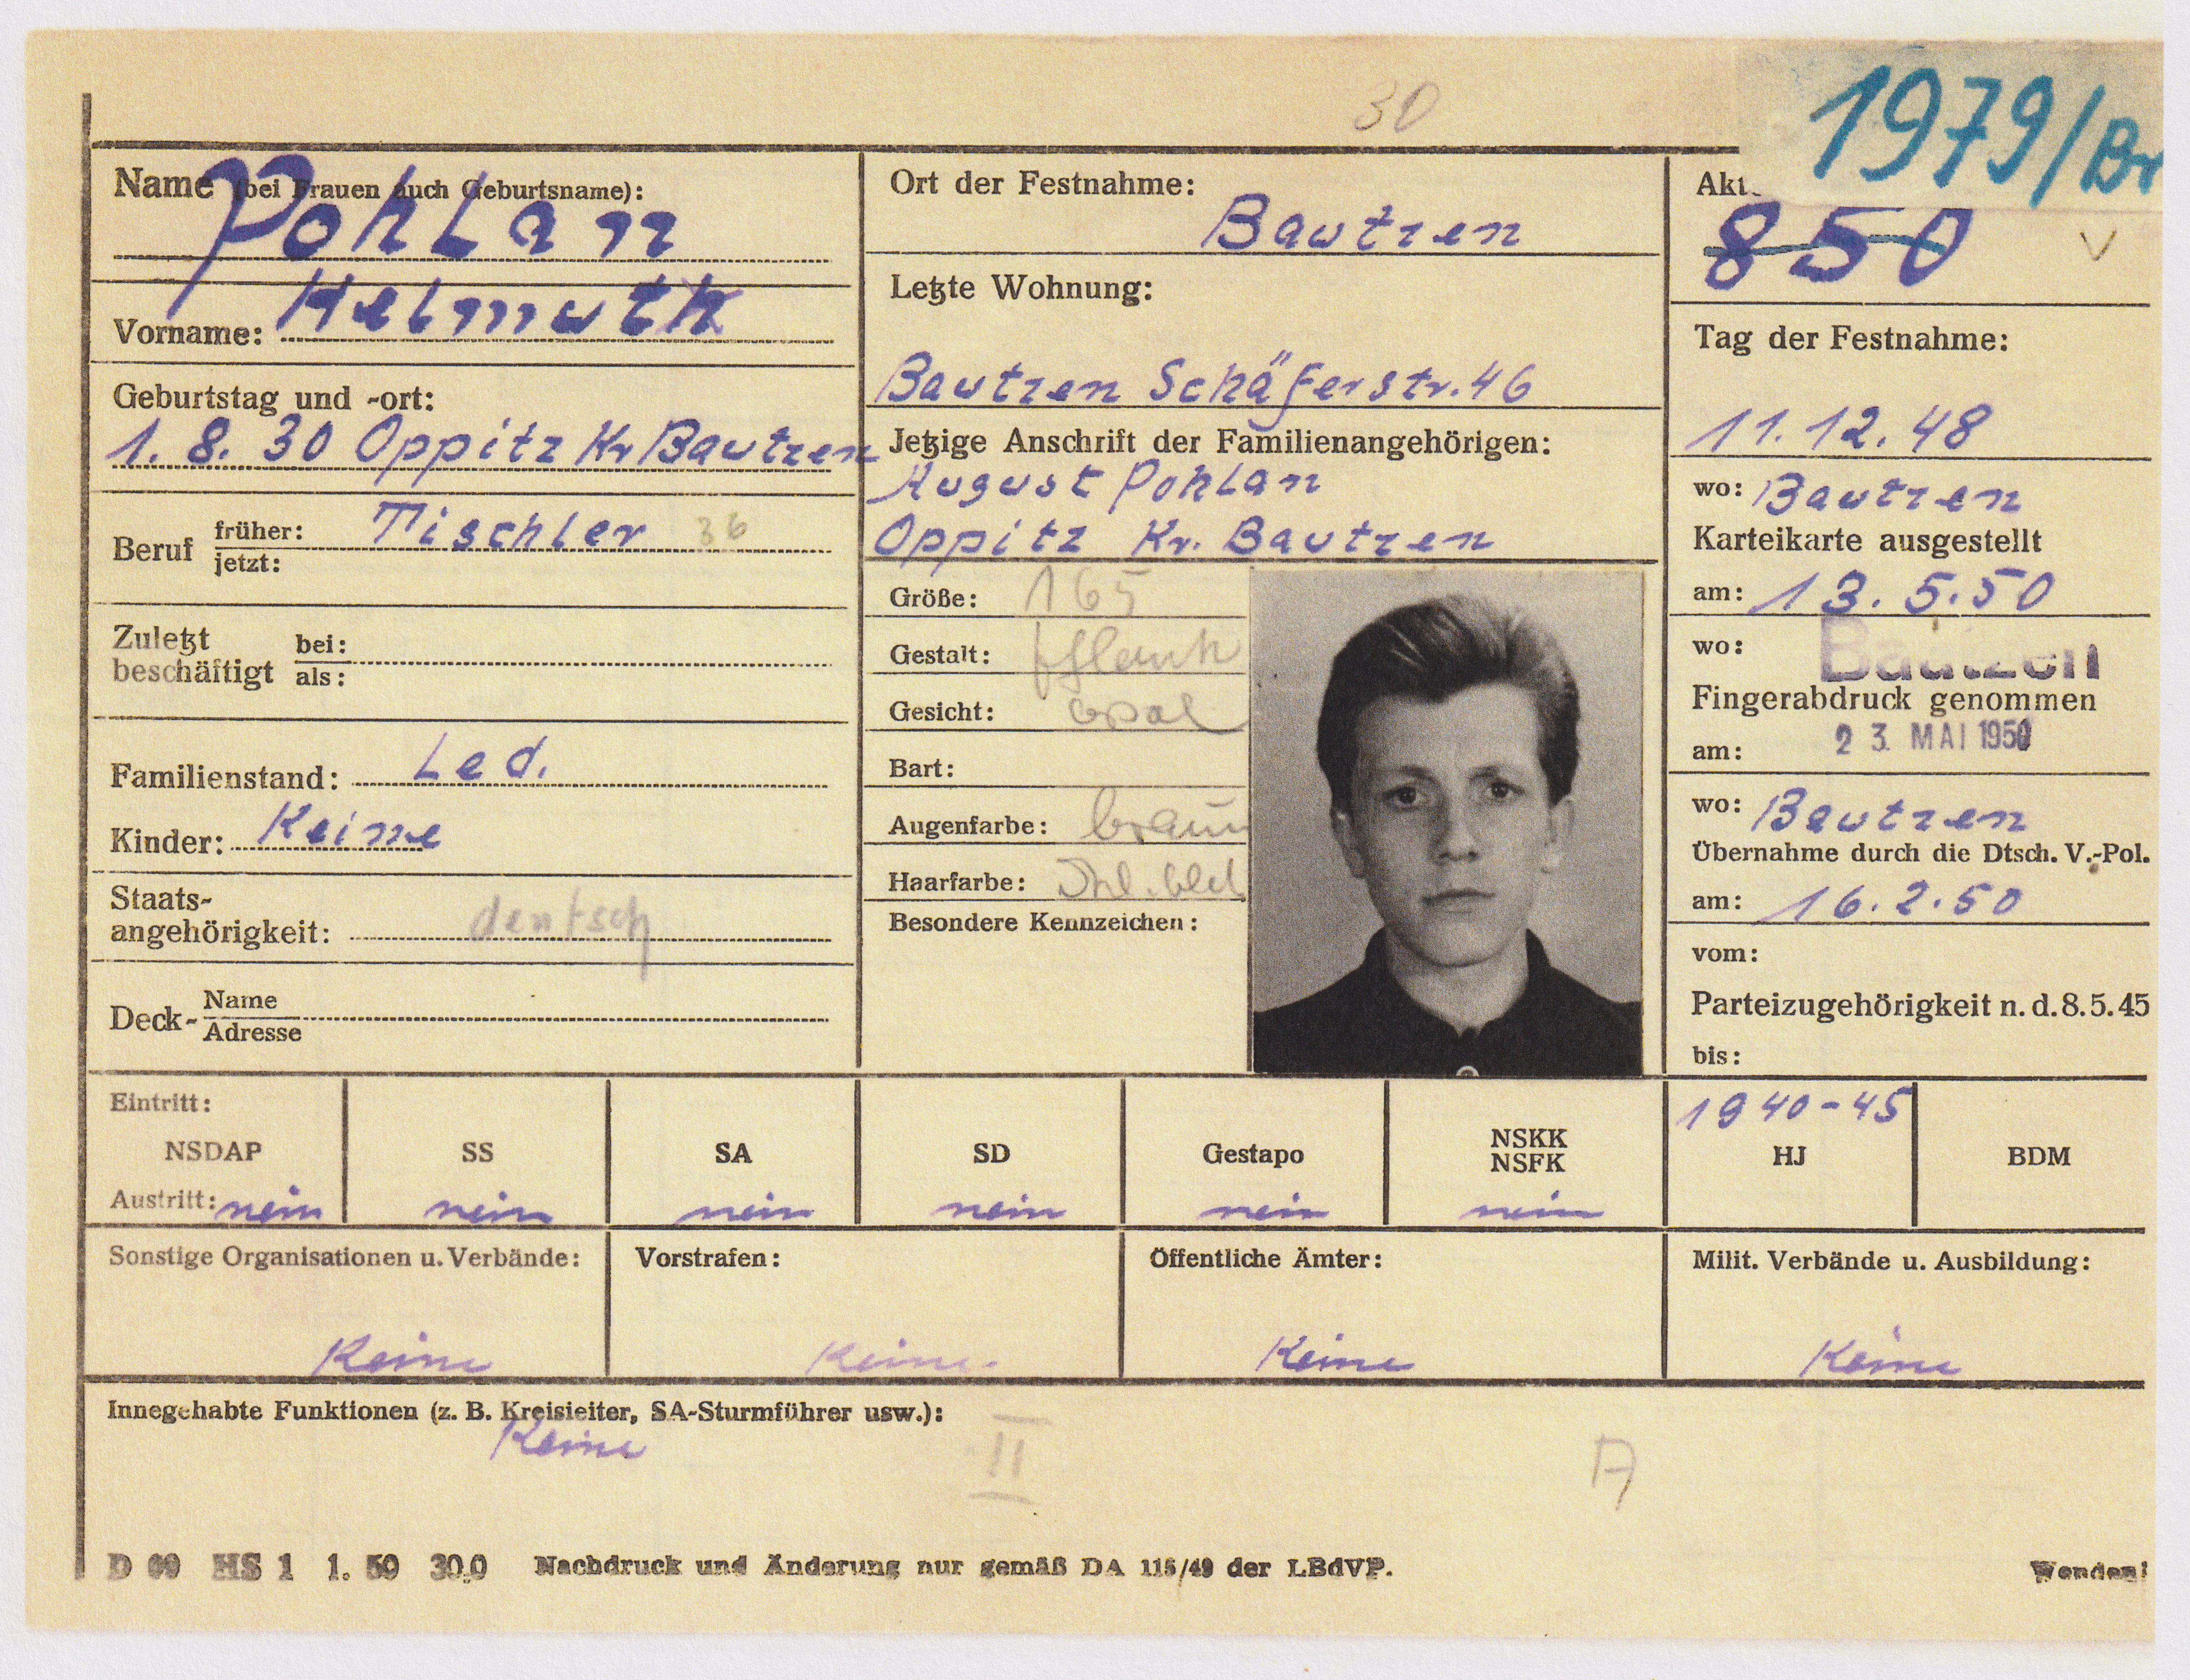 30
1979/Br
Name (bei Frauen auch Geburtsname):
Pohlan
Vorname: Helmuth
Geburtstag und -ort:
1. 8. 30 Oppitz Kr Bautzen
Beruf früher: Tischler 36
jetzt:
Zuletzt beschäftigt bei:
als:
Familienstand: Led.
Kinder: Keine
Staats-
angehörigkeit: deutsch
Deck- Name
Adresse
Ort der Festnahme:
Bautzen
Letzte Wohnung:
Bautzen Schäferstr. 46
Jetzige Anschrift der Familienangehörigen:
August Pohlan
Oppitz Kr. Bautzen
Größe: 165
Gestalt: schlank
Gesicht: oval
Bart:
Augenfarbe: braun
Haarfarbe:
Besondere Kennzeichen:
Akt.
850
V
Tag der Festnahme:
11. 12. 48
wo: Bautzen
Karteikarte ausgestellt
am: 13. 5. 50
wo: Bautzen
Fingerabdruck genommen
am: 23. MAI 1950
wo: Bautzen
Übernahme durch die Dtsch. V.-Pol.
am: 16. 2. 50
vom:
Parteizugehörigkeit n. d. 8. 5. 45
bis:
Eintritt: 1940-45
NSDAP SS SA SD Gestapo NSKK NSFK HJ BDM
Austritt: nein nein nein nein nein nein
Sonstige Organisationen u. Verbände: Vorstrafen: Öffentliche Ämter: Milit. Verbände u. Ausbildung:
Keine Keine. Keine Keine
Innegehabte Funktionen (z. B. Kreisleiter, SA-Sturmführer usw.):
Keine
II
A
D 09 HS 1 1. 50 30.0 Nachdruck und Änderung nur gemäß DA 115/49 der LBdVP. Wenden!